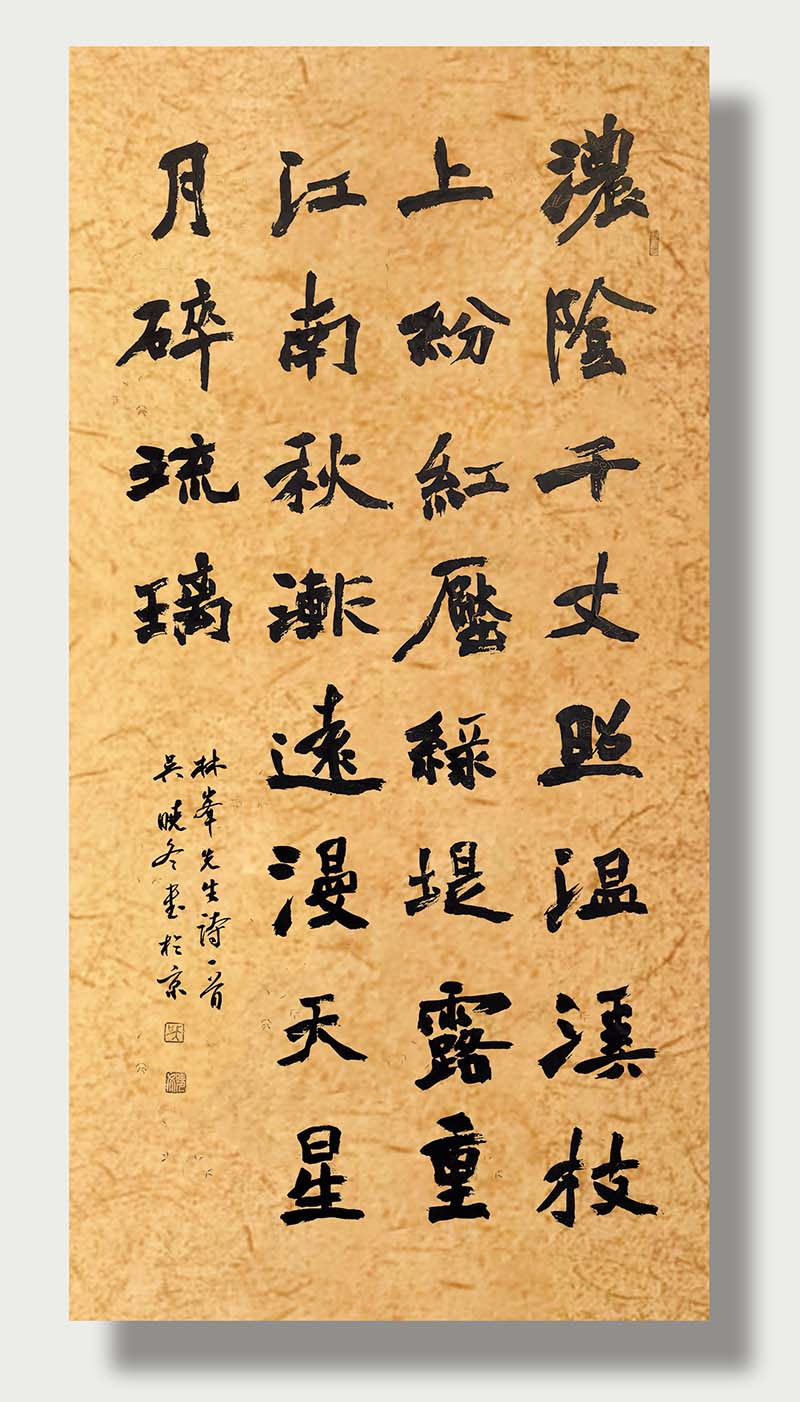 濃陰千丈照温溪枝
上紛紅壓綠堤露重
江南秋漸遠漫天星
月碎琉璃
林峯先生詩一首
吴曉冬書於京